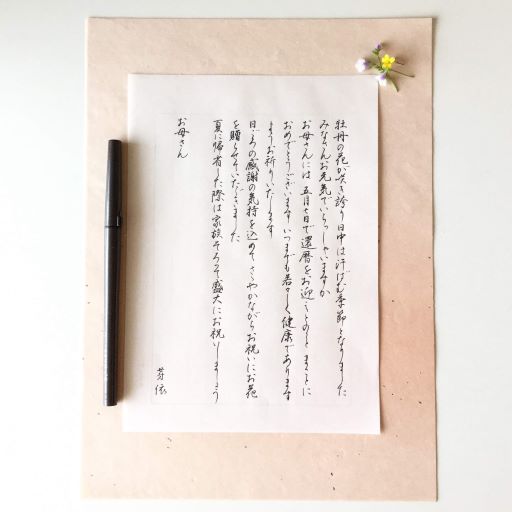 牡丹の花が咲き誇り日中は汗ばむ季節となりました
みなさんお元気でいらっしゃいますか
お母さんには五月七日で還暦をお迎えとのことまことに
おめでとうございますいつまでも若々しく健康であります
ようお祈りいたします
日ごろの感謝の気持を込めてささやかながらお祝いにお花
を贈らせていただきました
夏に帰省した際は家族そろって盛大にお祝いしましょう
芽依
お母さん